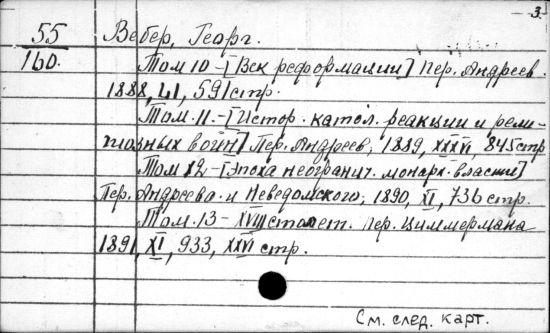 — 3.
55
160.
Вебер, Георг.
Том 10 - [Век реформации] Пер. Андреев.
1888, LI, 591 стр.
Том. 11. - [Истор. катол. реакции и рели-
гиозных войн] Пер. Андреев, 1889, XXXVI, 845 стр
Том 12 - [Эпоха неогранич. монарх. власти]
Пер. Андреева и Неведомского, 1890, XI, 736 стр.
Том. 13 - XVIII столет. Пер. Циммермана
1891, XI, 933, XXVI стр.
См. след. карт.